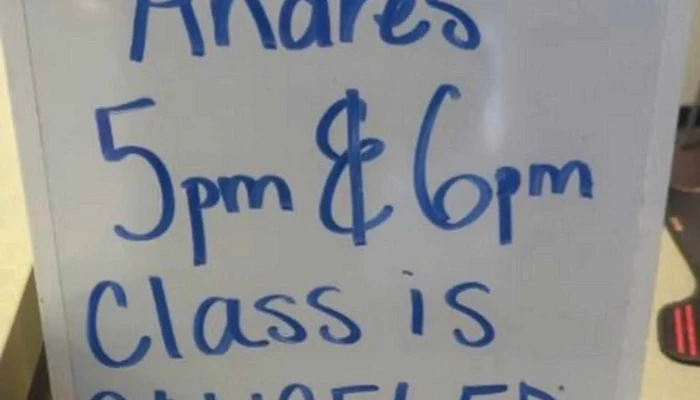 Andres
5pm & 6pm
Class is
CANCELED